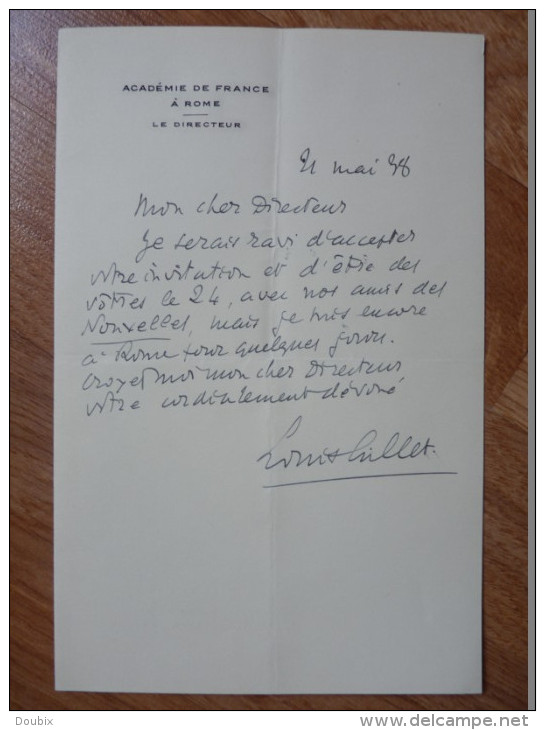 ACADÉMIE DE FRANCE
À ROME
LE DIRECTEUR
21 mai 38
Mon cher Directeur
Je serais ravi d'accepter
votre invitation et d'être des
vôtres le 24, avec nos amis des
Nouvelles, mais je suis encore
à Rome pour quelques jours.
Croyez moi mon cher Directeur
votre cordialement dévoué
Louis Gillet.
Doubix
www.delcampe.net